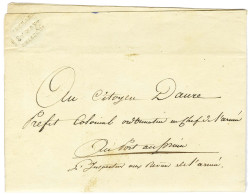 Au Citoyen Daure
Prefet Colonial ordonnateur en chef de l'armée
Au Port au prince
L'Inspecteur aux Revues de l'armée.